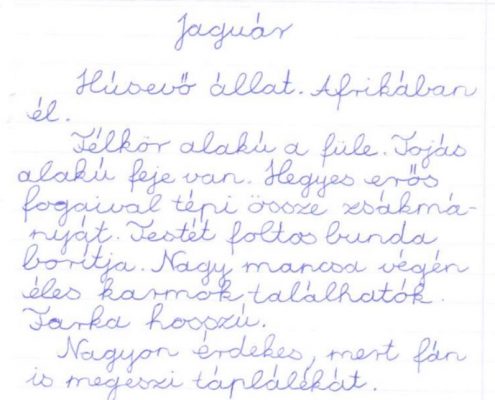 Jaguár
Húsevő állat. Afrikában
él.
Félkör alakú a füle. Tojás
alakú feje van. Hegyes erős
fogaival tépi össze zsákmá-
nyját. Testét foltos bunda
borítja. Nagy mancsa végén
éles karmok találhatók.
Farka hosszú.
Nagyon érdekes, mert fán
is megeszi táplálékát.